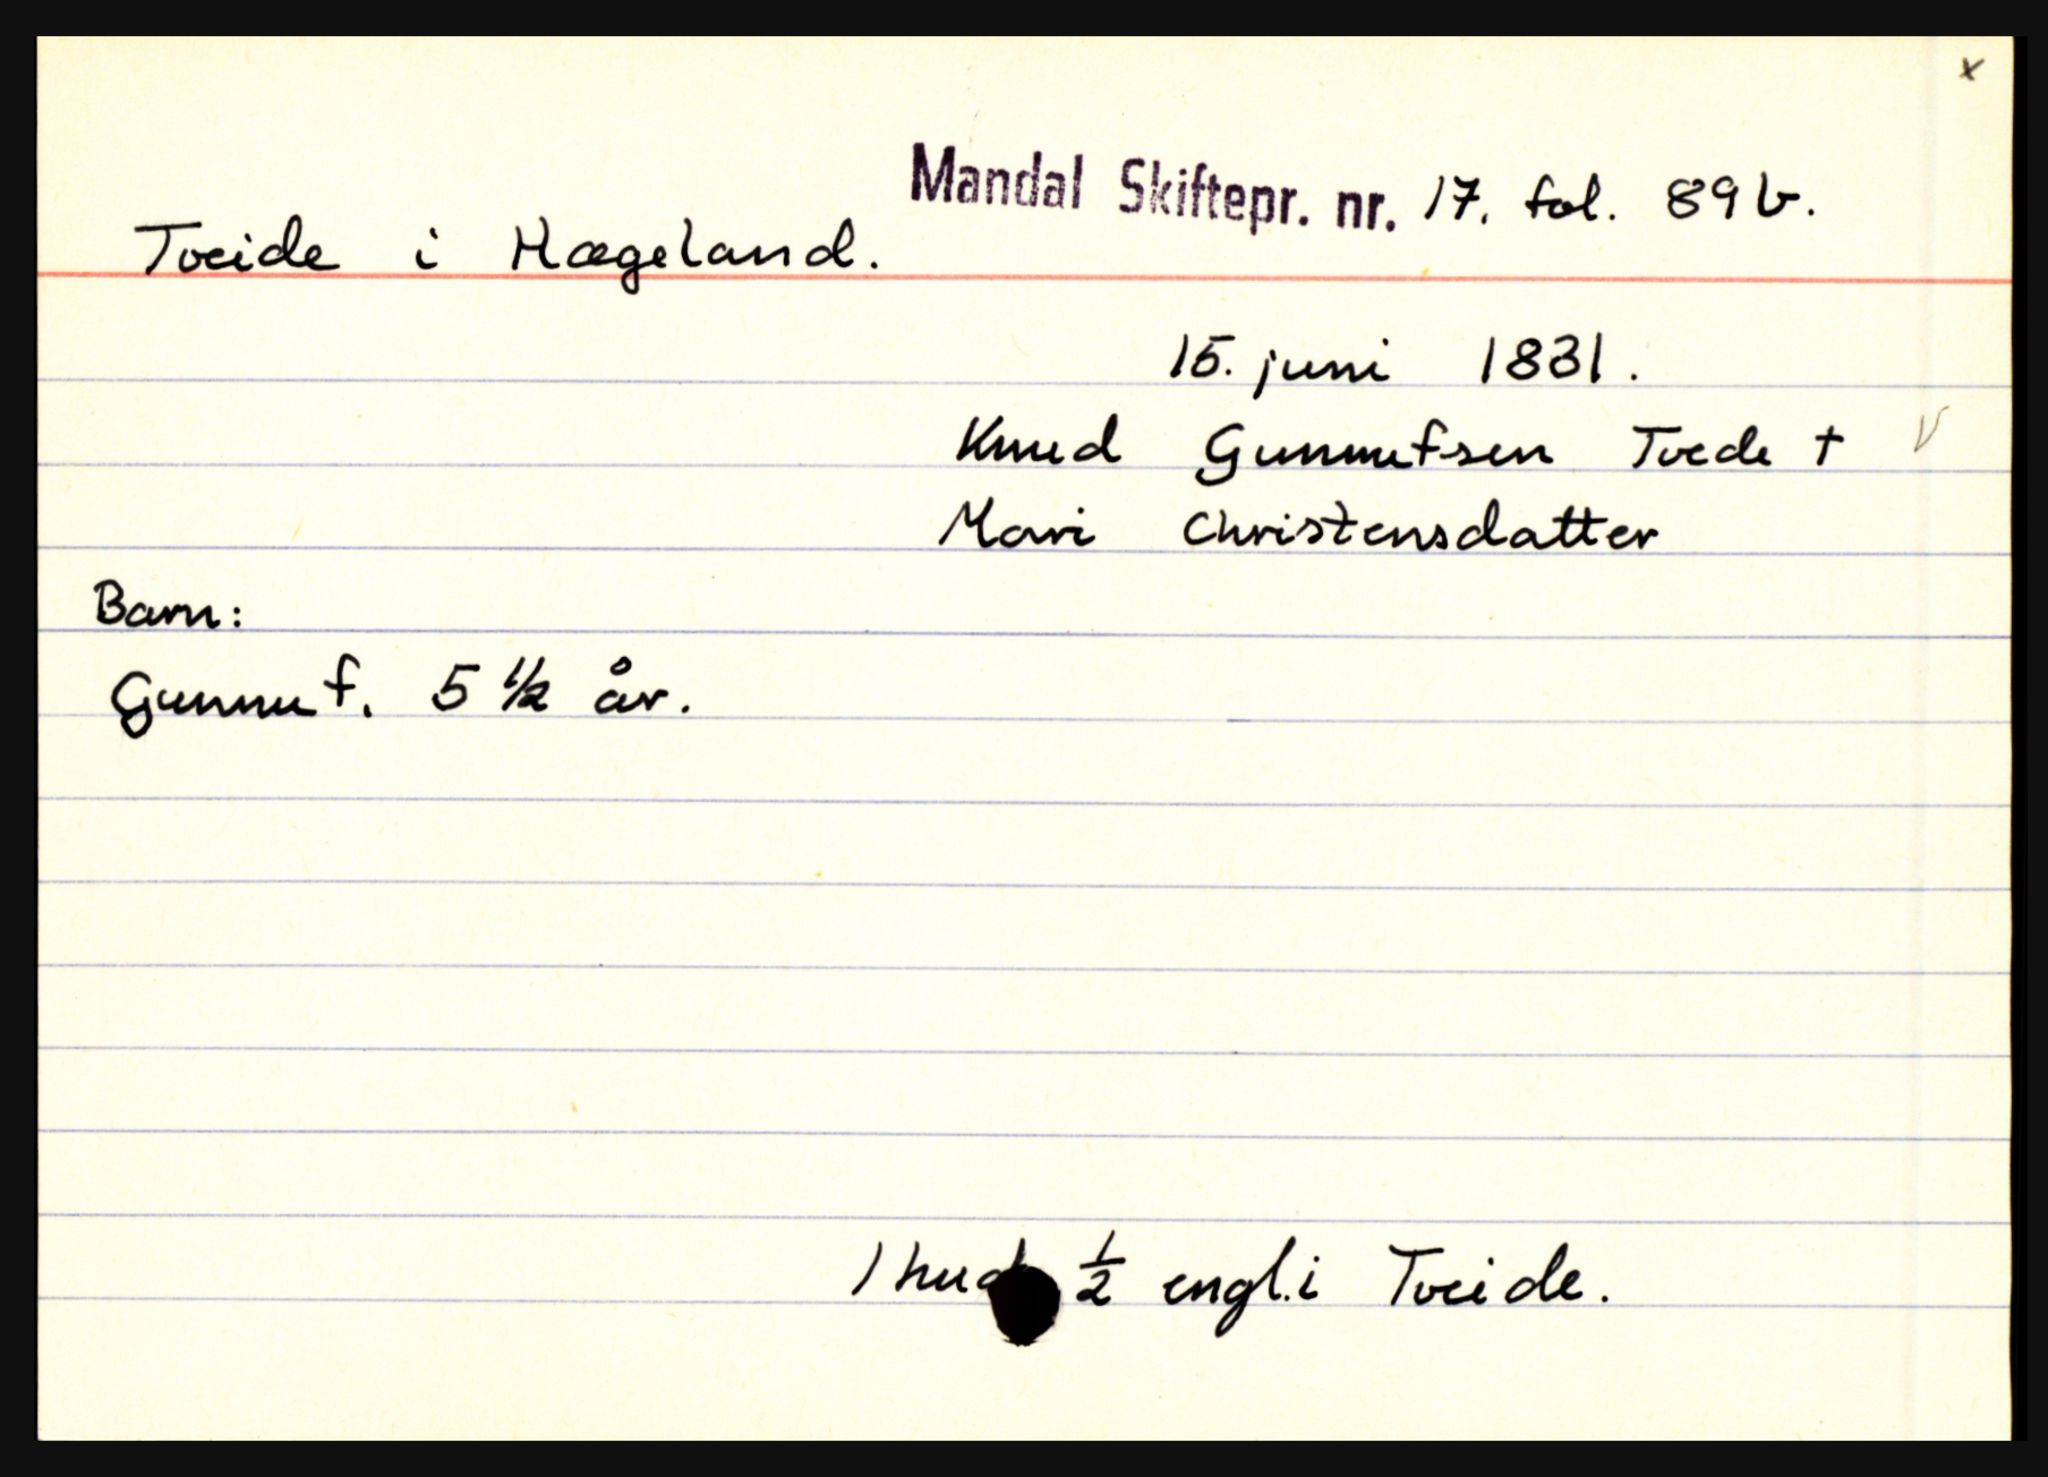 x
Mandal Skiftepr. nr. 17. fol. 89 b.
Tveide i Hægeland.
15. juni 1831.
Knud Gunnufsen Tvede † v
Mari Christensdatter
Barn:
Gunnuf. 5 1/2 år.
1 hud 1/2 engl. i Tveide.